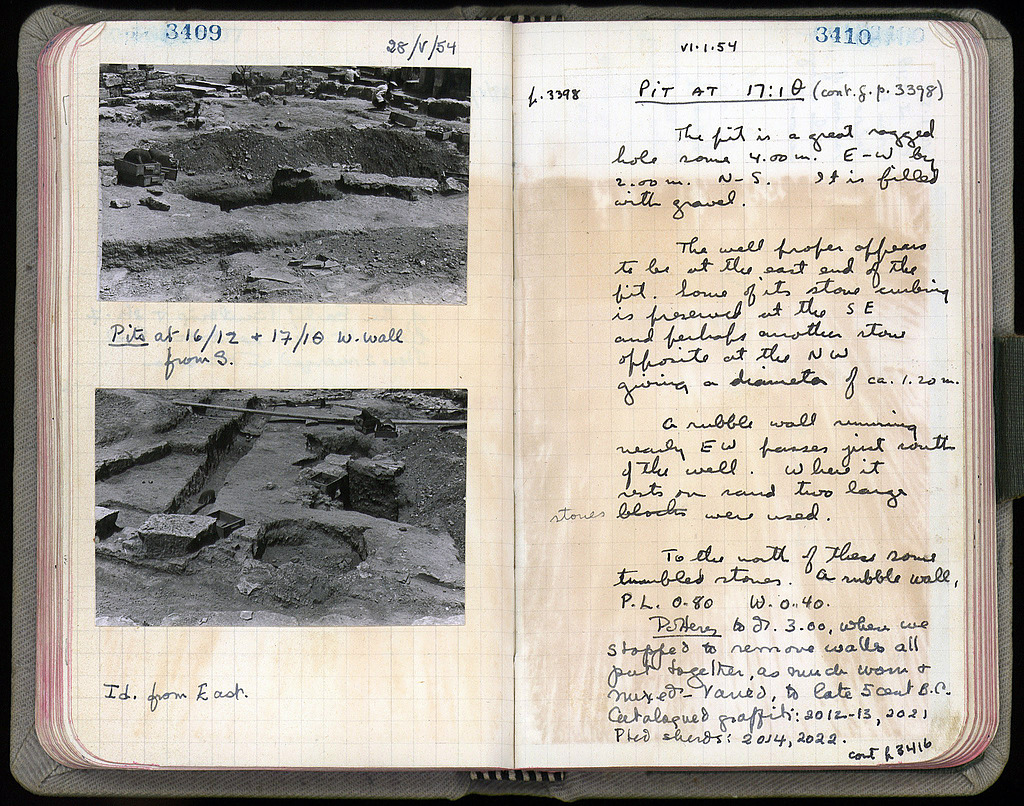 3409
28/V/54
Pits at 16/12 + 17/1Θ W. wall
from S.
Id. from East.
3410
VI.1.54
p. 3398
PIT AT 17:1Θ (cont. f. p. 3398)
The pit is a great ragged
hole some 4.00 m. E-W by
2.00 m. N-S. It is filled
with gravel.
The well proper appears
to be at the east end of the
pit. Some of its stone curbing
is preserved at the SE
and perhaps another stone
opposite at the NW
giving a diameter of ca. 1.20 m.
A rubble wall running
nearly EW passes just south
of the well. Where it
rests on sand two large
stones blocks were used.
To the north of these some
tumbled stones. A rubble wall,
P.L. 0.80 W. 0.40.
Pottery to D. 3.00, where we
stopped to remove walls all
put together, as much worn +
mixed - Varied, to late 5 cent B.C.
Catalogued graffiti: 2012-13, 2021
Pted sherds: 2014, 2022.
cont p. 3416